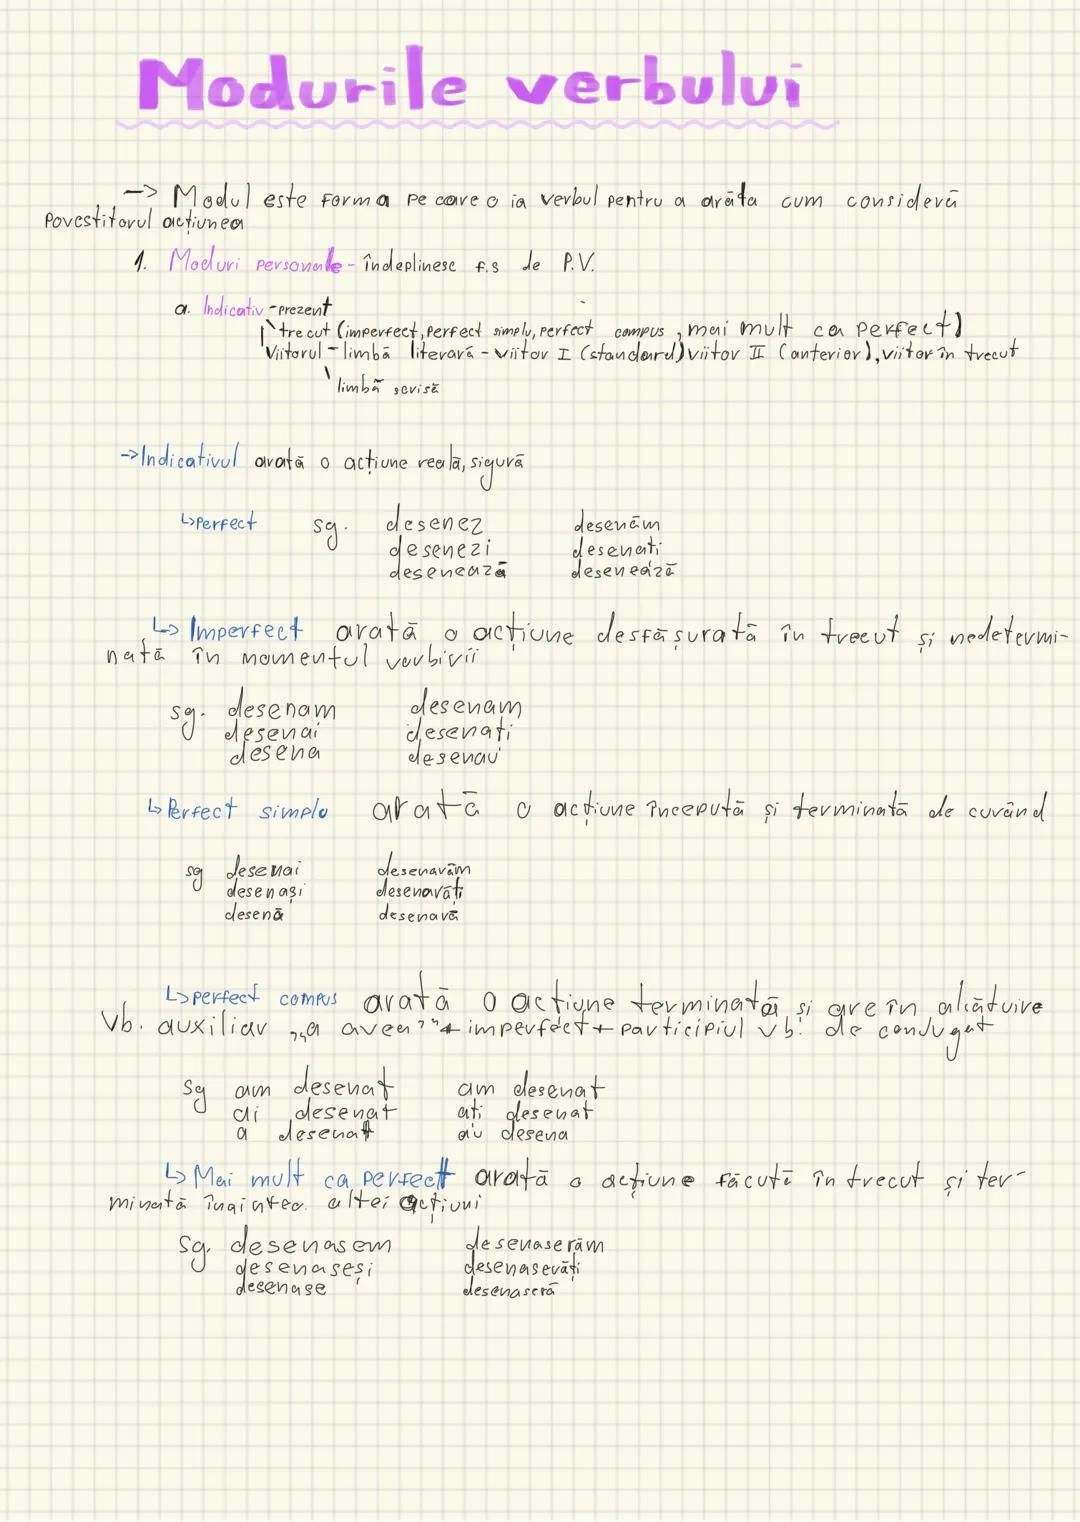 Modurile verbului
-> Modul este forma pe care o ia verbul pentru a arăta cum consideră
povestitorul acțiunea
1. Moduri personale - îndeplinesc f.s de P.V.
a. Indicativ - prezent
trecut (imperfect, perfect simplu, perfect compus, mai mult ca perfect)
Viitorul - limbă literară - viitor I (standard) viitor II (anterior), viitor în trecut
limbă scrisă
-> Indicativul arată o acțiune reală, sigură
↳ perfect sg. desenez desenăm
desenezi desenați
desenează desenează
↳ Imperfect arată o acțiune desfășurată în trecut și nedetermi-
nată în momentul vorbirii
sg. desenam desenam
desenai desenați
desena desenau
↳ Perfect simplu arată o acțiune începută și terminată de curând
sg desenai desenarăm
desenași desenarăți
desenă desenară
↳ perfect compus arată o acțiune terminată și are în alcătuire
vb. auxiliar „a avea" + imperfect + participiul vb. de conjugat
sg am desenat am desenat
ai desenat ați desenat
a desenat au desena
↳ Mai mult ca perfect arată o acțiune făcută în trecut și ter-
minată înaintea altei acțiuni
sg. desenasem desenaserăm
desenaseși desenaserăți
desenase desenaseră